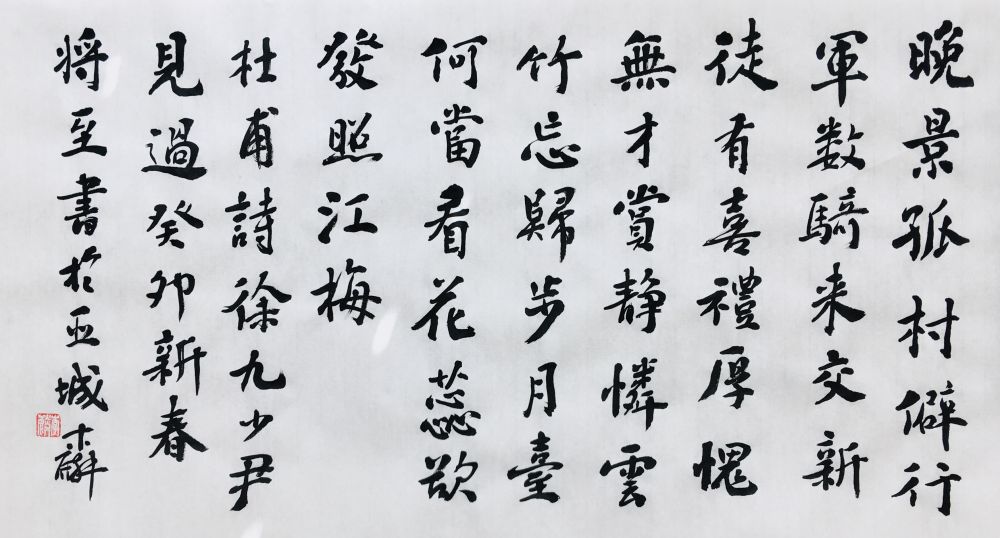 晚景孤村僻行
軍数騎来交新
徒有喜禮厚愧
無才賞静憐雲
竹忘歸步月臺
何當看花蕊欲
發照江梅
杜甫詩徐九少尹
見過癸卯新春
将至書於城